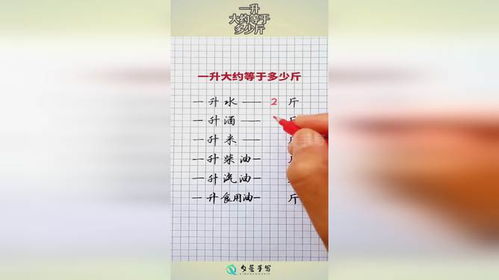 一升
大约等于
多少斤
一升大约等于多少斤
一升水—— 2 斤
一升酒—— 斤
一升米—— 斤
一升柴油— 斤
一升汽油— 斤
一升食用油— 斤